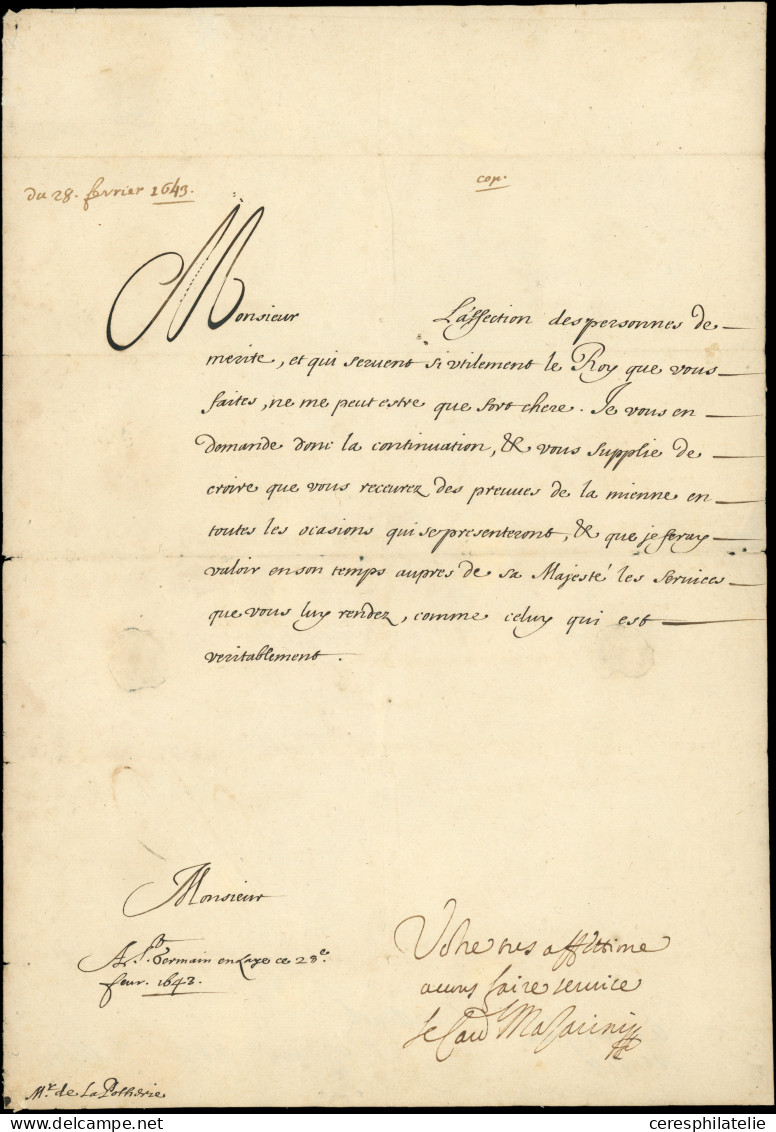 du 28. fevrier 1643.
cop.
Monsieur L'affection des personnes de
merite, et qui servent si vtilement le Roy que vous
faites, ne me peut estre que fort chere. Je vous en
demande donc la continuation, & vous supplie de
croire que vous receurez des preuues de la mienne en
toutes les ocasions qui se presenteront, & que je feray
valoir en son temps aupres de sa Majesté les services
que vous luy rendez, comme celuy qui est
veritablement.
Monsieur
A St. Germain en Laye ce 28e.
feur. 1643.
Vostre tres affettine
a vous faire service
le Card Mazarini
Mr. de La Potherie
delcampe.net
ceresphilatelie